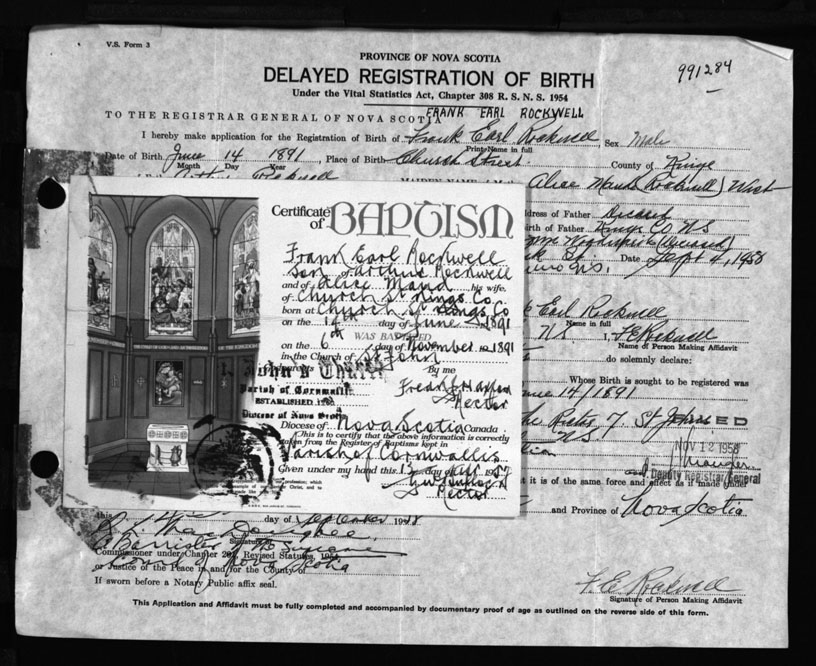 V.S. Form 3
991284
PROVINCE OF NOVA SCOTIA
DELAYED REGISTRATION OF BIRTH
Under the Vital Statistics Act, Chapter 308 R. S. N. S. 1954
TO THE REGISTRAR GENERAL OF NOVA SCOTIA FRANK EARL ROCKWELL
I hereby make application for the Registration of Birth of Frank Earl Rockwell Sex Male
Print Name in full
Date of Birth June 14 1891, Place of Birth Church Street County of Kings
Month Day Year
Rockwell MAIDEN NAME Alice Maud (Rockwell) West
dress of Father Deceased
irth of Father Kings Co NS
(Deceased)
Date Sept 4, 1958
Certificate of BAPTISM
Frank Earl Rockwell
son of Arthur Rockwell
and of Alice Maud his wife,
of Church St Kings Co
born at Church St Kings Co
on the 14th day of June 1891
WAS BAPTIZED
on the 6th day of November 1891
in the Church of St John
By me
Rector
St. John's Church
Parish of Cornwallis
ESTABLISHED
Diocese of Nova Scotia
Diocese of Nova Scotia Canada
This is to certify that the above information is correctly
taken from the Register of Baptisms kept in
Parish of Cornwallis
Given under my hand this day of 1957
Rector
Earl Rockwell
Name in full
NS I, F E Rockwell
Name of Person Making Affidavit
do solemnly declare:
Whose Birth is sought to be registered was
June 14/1891
the Rector, of St Johns
NOV 12 1958
Deputy Registrar General
it is of the same force and effect as if made under
and Province of Nova Scotia
this day of September 1958
Signature of
A Barrister of the Supreme
Commissioner under Chapter Revised Statutes,
Court of Nova Scotia
or Justice of the Peace in and for the County of
If sworn before a Notary Public affix seal.
F. E. Rockwell
Signature of Person Making Affidavit
This Application and Affidavit must be fully completed and accompanied by documentary proof of age as outlined on the reverse side of this form.